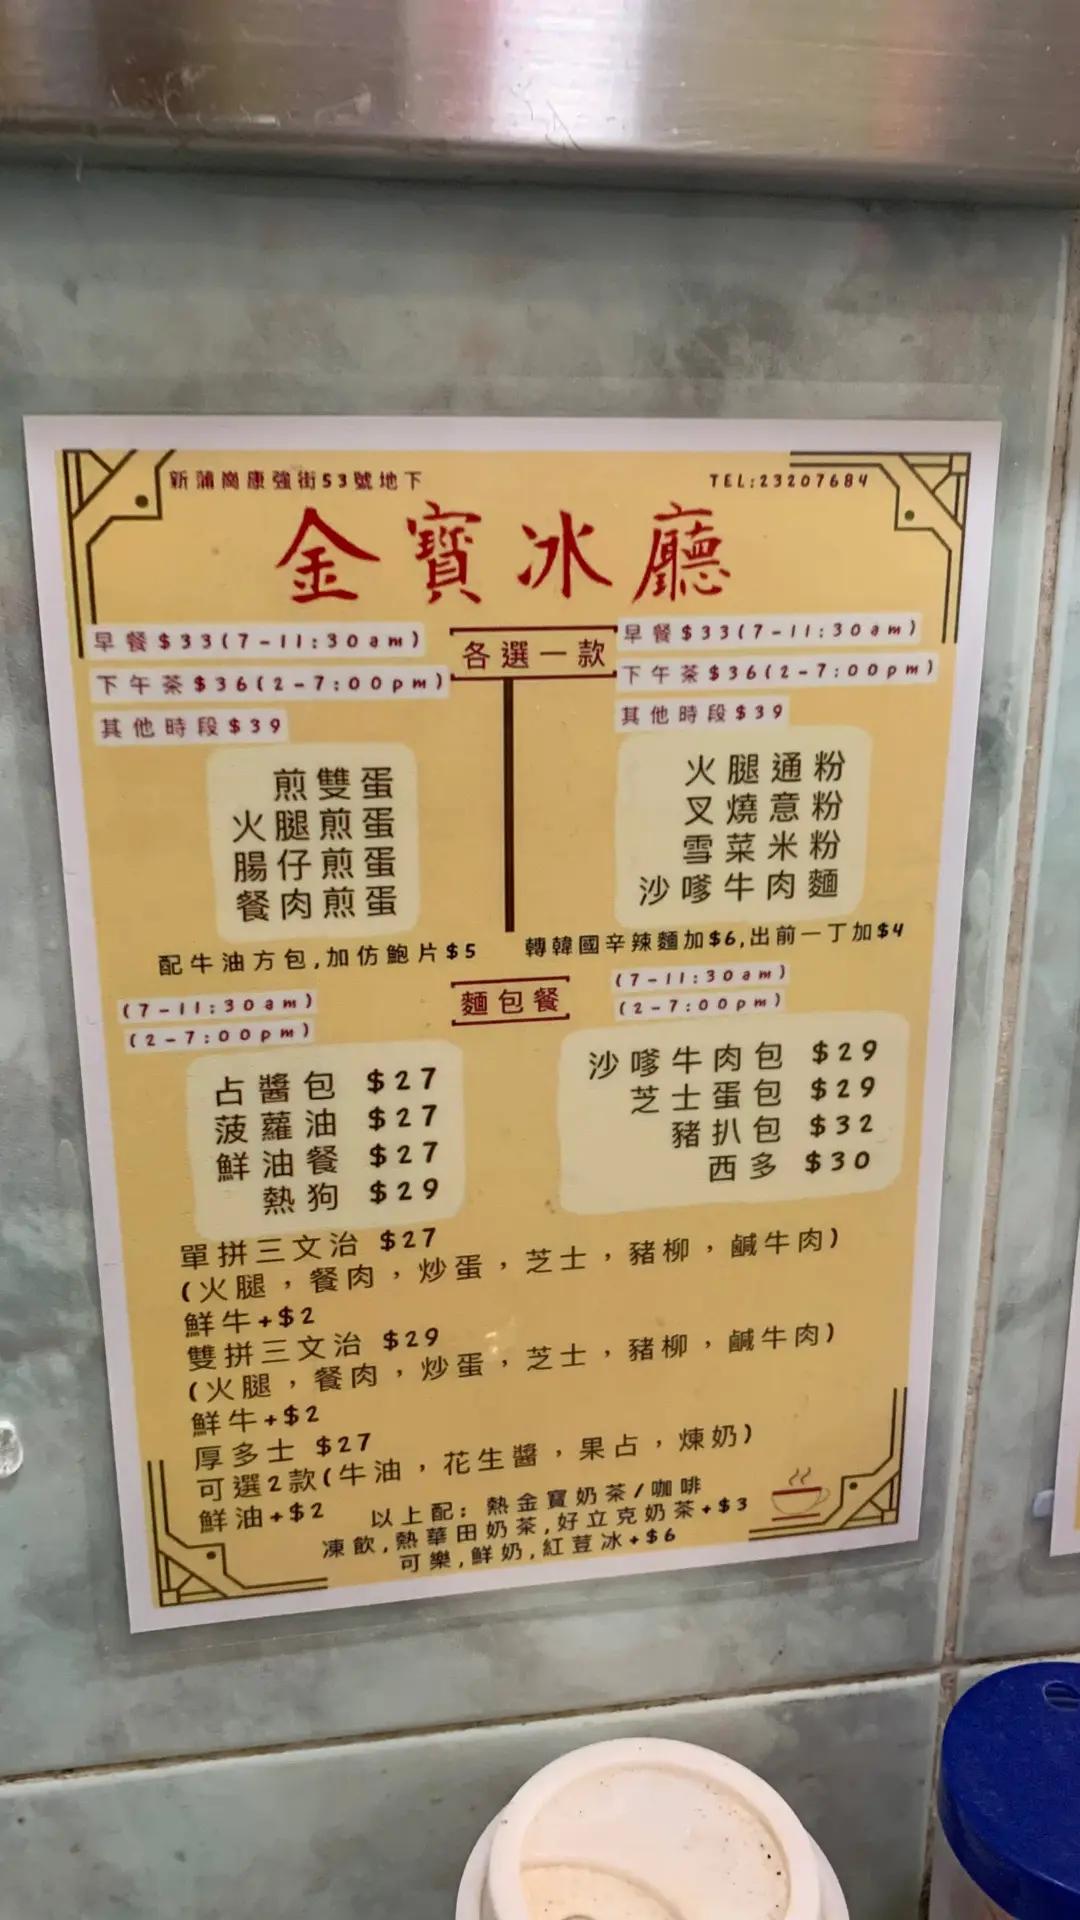 新蒲崗康強街53號地下
TEL:23207684
金寶冰廳
各選一款
早餐$33(7-11:30am)
下午茶$36(2-7:00pm)
其他時段$39
煎雙蛋
火腿煎蛋
腸仔煎蛋
餐肉煎蛋
配牛油方包,加仿鮑片$5
早餐$33(7-11:30am)
下午茶$36(2-7:00pm)
其他時段$39
火腿通粉
叉燒意粉
雪菜米粉
沙嗲牛肉麵
轉韓國辛辣麵加$6,出前一丁加$4
麵包餐
(7-11:30am)
(2-7:00pm)
占醬包 $27
菠蘿油 $27
鮮油餐 $27
熱狗 $29
(7-11:30am)
(2-7:00pm)
沙嗲牛肉包 $29
芝士蛋包 $29
豬扒包 $32
西多 $30
單拼三文治 $27
(火腿，餐肉，炒蛋，芝士，豬柳，鹹牛肉)
鮮牛+$2
雙拼三文治 $29
(火腿，餐肉，炒蛋，芝士，豬柳，鹹牛肉)
鮮牛+$2
厚多士 $27
可選2款(牛油，花生醬，果占，煉奶)
鮮油+$2
以上配: 熱金寶奶茶/咖啡
凍飲,熱華田奶茶,好立克奶茶+$3
可樂,鮮奶,紅荳冰+$6